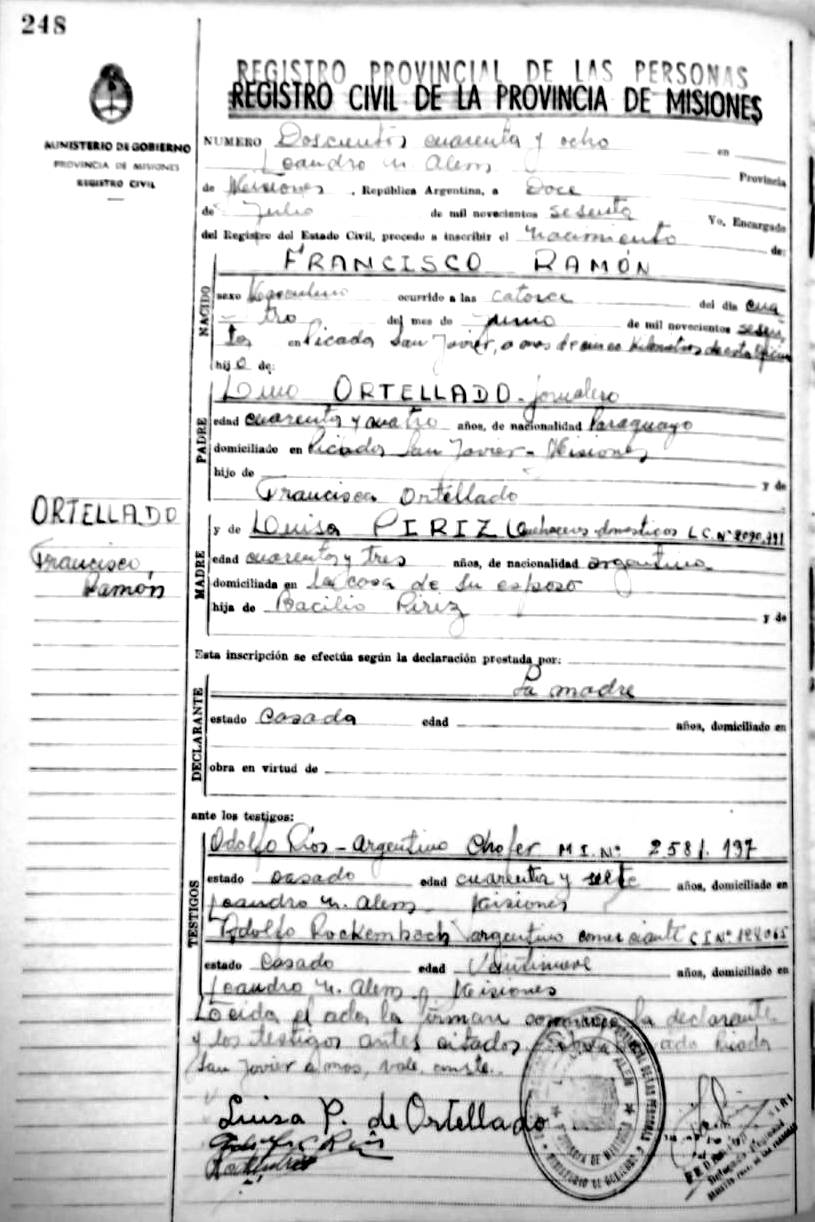 248
REGISTRO PROVINCIAL DE LAS PERSONAS
REGISTRO CIVIL DE LA PROVINCIA DE MISIONES
MINISTERIO DE GOBIERNO
PROVINCIA DE MISIONES
REGISTRO CIVIL
NUMERO Doscientos cuarenta y ocho en
Leandro N. Alem Provincia
de Misiones, República Argentina, a Doce
de Julio de mil novecientos sesenta Yo, Encargado
del Registro del Estado Civil, procedo a inscribir el Nacimiento de:
FRANCISCO RAMÓN
NACIDO
sexo Masculino ocurrido a las catorce del día cua
tro del mes de junio de mil novecientos sesen
ta en Picada San Javier, a mas de cinco Kilometros de esta
hijo de:
PADRE
Lino ORTELLADO - jornalero
edad cuarenta y cuatro años, de nacionalidad Paraguayo
domiciliado en Picada San Javier - Misiones
hijo de y de
Francisca Ortellado
ORTELLADO
Francisco
Ramón
MADRE
y de Luisa PIRIZ Quehaceres domesticos L.C. Nº 2090.791
edad cuarenta y tres años, de nacionalidad argentina
domiciliada en la casa de su esposo
hija de Bacilio Piriz y de
Esta inscripción se efectúa según la declaración prestada por:
La madre
DECLARANTE
estado Casada edad años, domiciliado en
obra en virtud de
ante los testigos:
TESTIGOS
Odolfo Rios - argentino Chofer M.I. Nº 2.581.137
estado casado edad cuarenta y siete años, domiciliado en
Leandro N. Alem - Misiones
Rodolfo Rockembach argentino comerciante C I Nº 122065
estado Casado edad Veintinueve años, domiciliado en
Leandro N. Alem - Misiones
Leida el acta la firman conmigo la declarante
y los testigos antes citados. ado Picada
San Javier a mas, vale, conste.
Luisa P. de Ortellado